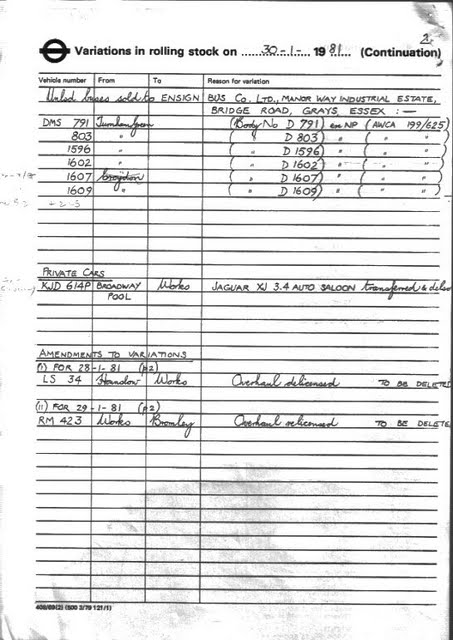 2.
Variations in rolling stock on 30-1- 1981 (Continuation)
Vehicle number From To Reason for variation
buses sold to ENSIGN BUS CO. LTD., MANOR WAY INDUSTRIAL ESTATE,
BRIDGE ROAD, GRAYS, ESSEX :—
DMS 791 Turnham Green (Body No D 791) ex NP (AWCA 199/625)
803 " ( " D 803) " ( " " )
1596 " ( " D 1596) " ( " " )
1602 " ( " D 1602) " ( " " )
1607 Croydon ( " D 1607) " ( " " )
1609 " ( " D 1609) " ( " " )
PRIVATE CARS
XJD 614P BROADWAY Works JAGUAR XJ 3.4 AUTO SALOON transferred &
POOL
AMENDMENTS TO VARIATIONS
(i) FOR 28-1-81 (p2)
LS 34 Hounslow Works Overhaul delicensed TO BE DELETED
(ii) FOR 29-1-81 (p2)
RM 423 Works Bromley Overhaul relicensed TO BE DELETE
409/69(2) (500 3/79 121/1)